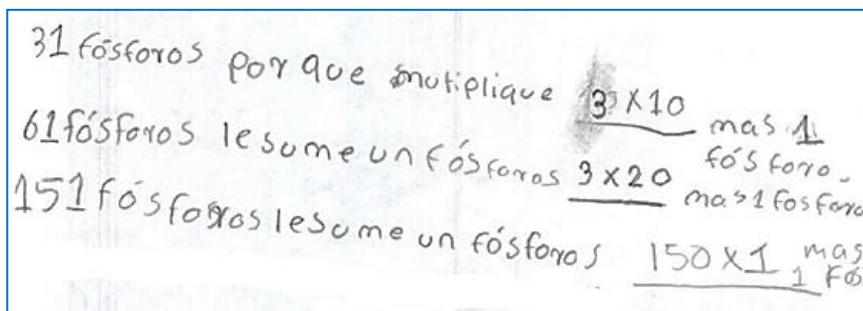 31 fósforos por que mutiplique 3 x 10 mas 1 fósforo.
61 fósforos le sume un fósforos 3 x 20 mas 1 fosforo
151 fósforos le sume un fósforos 150 x 1 mas 1 fós